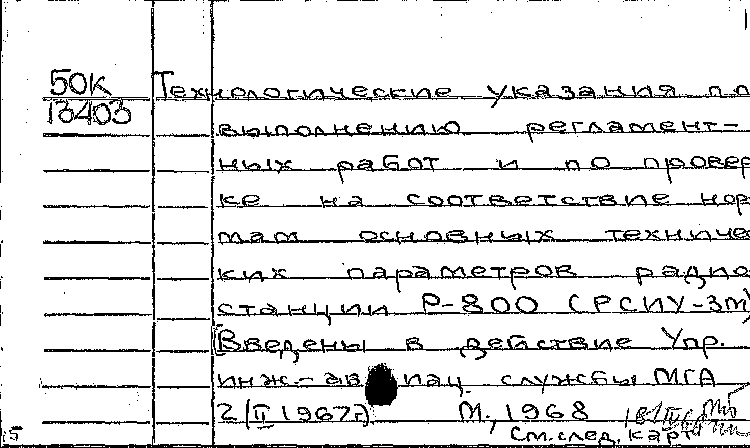 50К Технологические указания по
13403 выполнению регламент-
ных работ и по провер
ке на соответствие нор
мам основных техниче
ких параметров радио
станции Р-800 (РСИУ-3м)
[Введены в действие Упр.
инж.-ав пац. службы МГА
2/II 1967г) М., 1968
5 См.след.карт